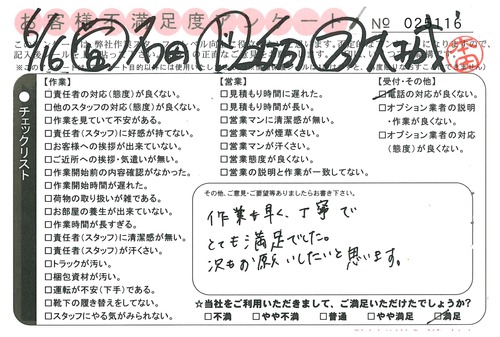 お客様不満足度アンケート
№ 029116
【作業】
□責任者の対応(態度)が良くない。
□他のスタッフの対応(態度)が良くない。
□作業を見ていて不安がある。
□責任者(スタッフ)に好感が持てない。
□お客様への挨拶が出来ていない。
□ご近所への挨拶・気遣いが無い。
□作業開始前の内容確認がなかった。
□作業開始時間が遅れた。
□荷物の取り扱いが雑である。
□お部屋の養生が出来ていない。
□作業時間が長すぎる。
□責任者(スタッフ)に清潔感が無い。
□責任者(スタッフ)が汗くさい。
□トラックが汚い。
□梱包資材が汚い。
□運転が不安(下手)である。
□靴下の履き替えをしてない。
□スタッフにやる気がみられない。
【営業】
□見積もり時間に遅れた。
□見積もり時間が長い。
□営業マンに清潔感が無い。
□営業マンが煙草くさい。
□営業マンが汗くさい。
□営業態度が良くない。
□営業の説明と作業が一致してない。
【受付・その他】
□電話の対応が良くない。
□オプション業者の説明
・作業が良くない。
□オプション業者の対応
(態度)が良くない。
チェックリスト
その他、ご意見・ご要望等ありましたらお書き下さい。
作業も早く、丁寧で
とても満足でした。
次もお願いしたいと思います。
☆当社をご利用いただきまして、ご満足いただけたでしょうか?
□不満 □やや不満 □普通 □やや満足 ☑満足